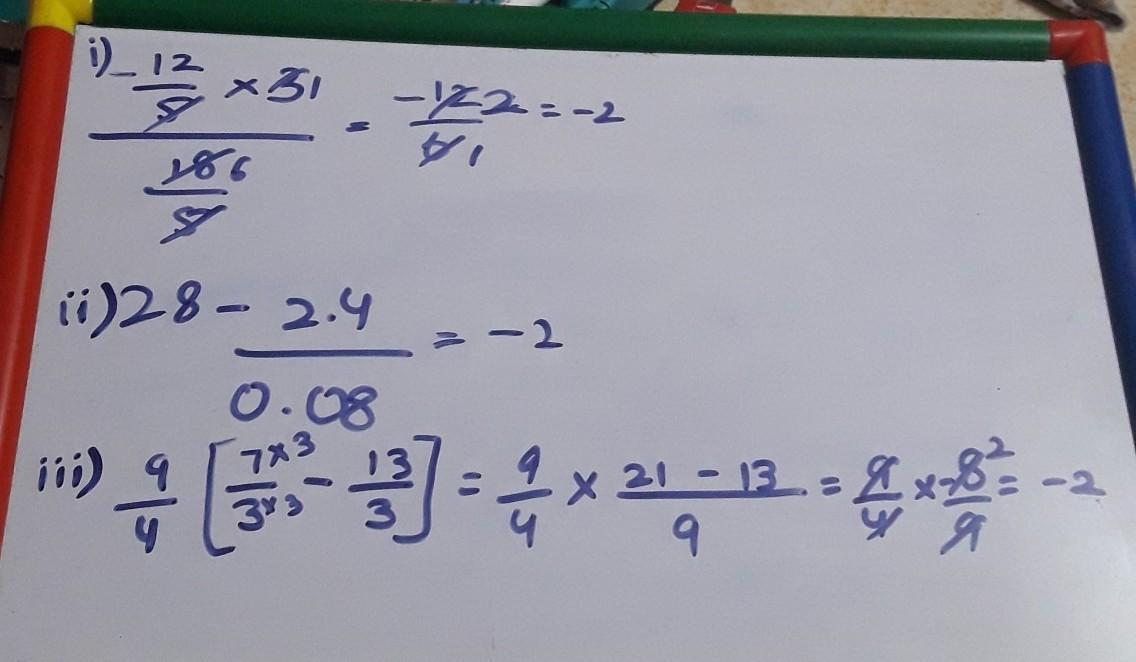 i) -12/5 × 31 / 18 6/5 = -12 2/6 1 = -2
ii) 28 - 2.4/0.08 = -2
iii) 9/4 [7×3/3×3 - 13/3] = 9/4 × 21 - 13/9 = 9/4 × -8²/9 = -2